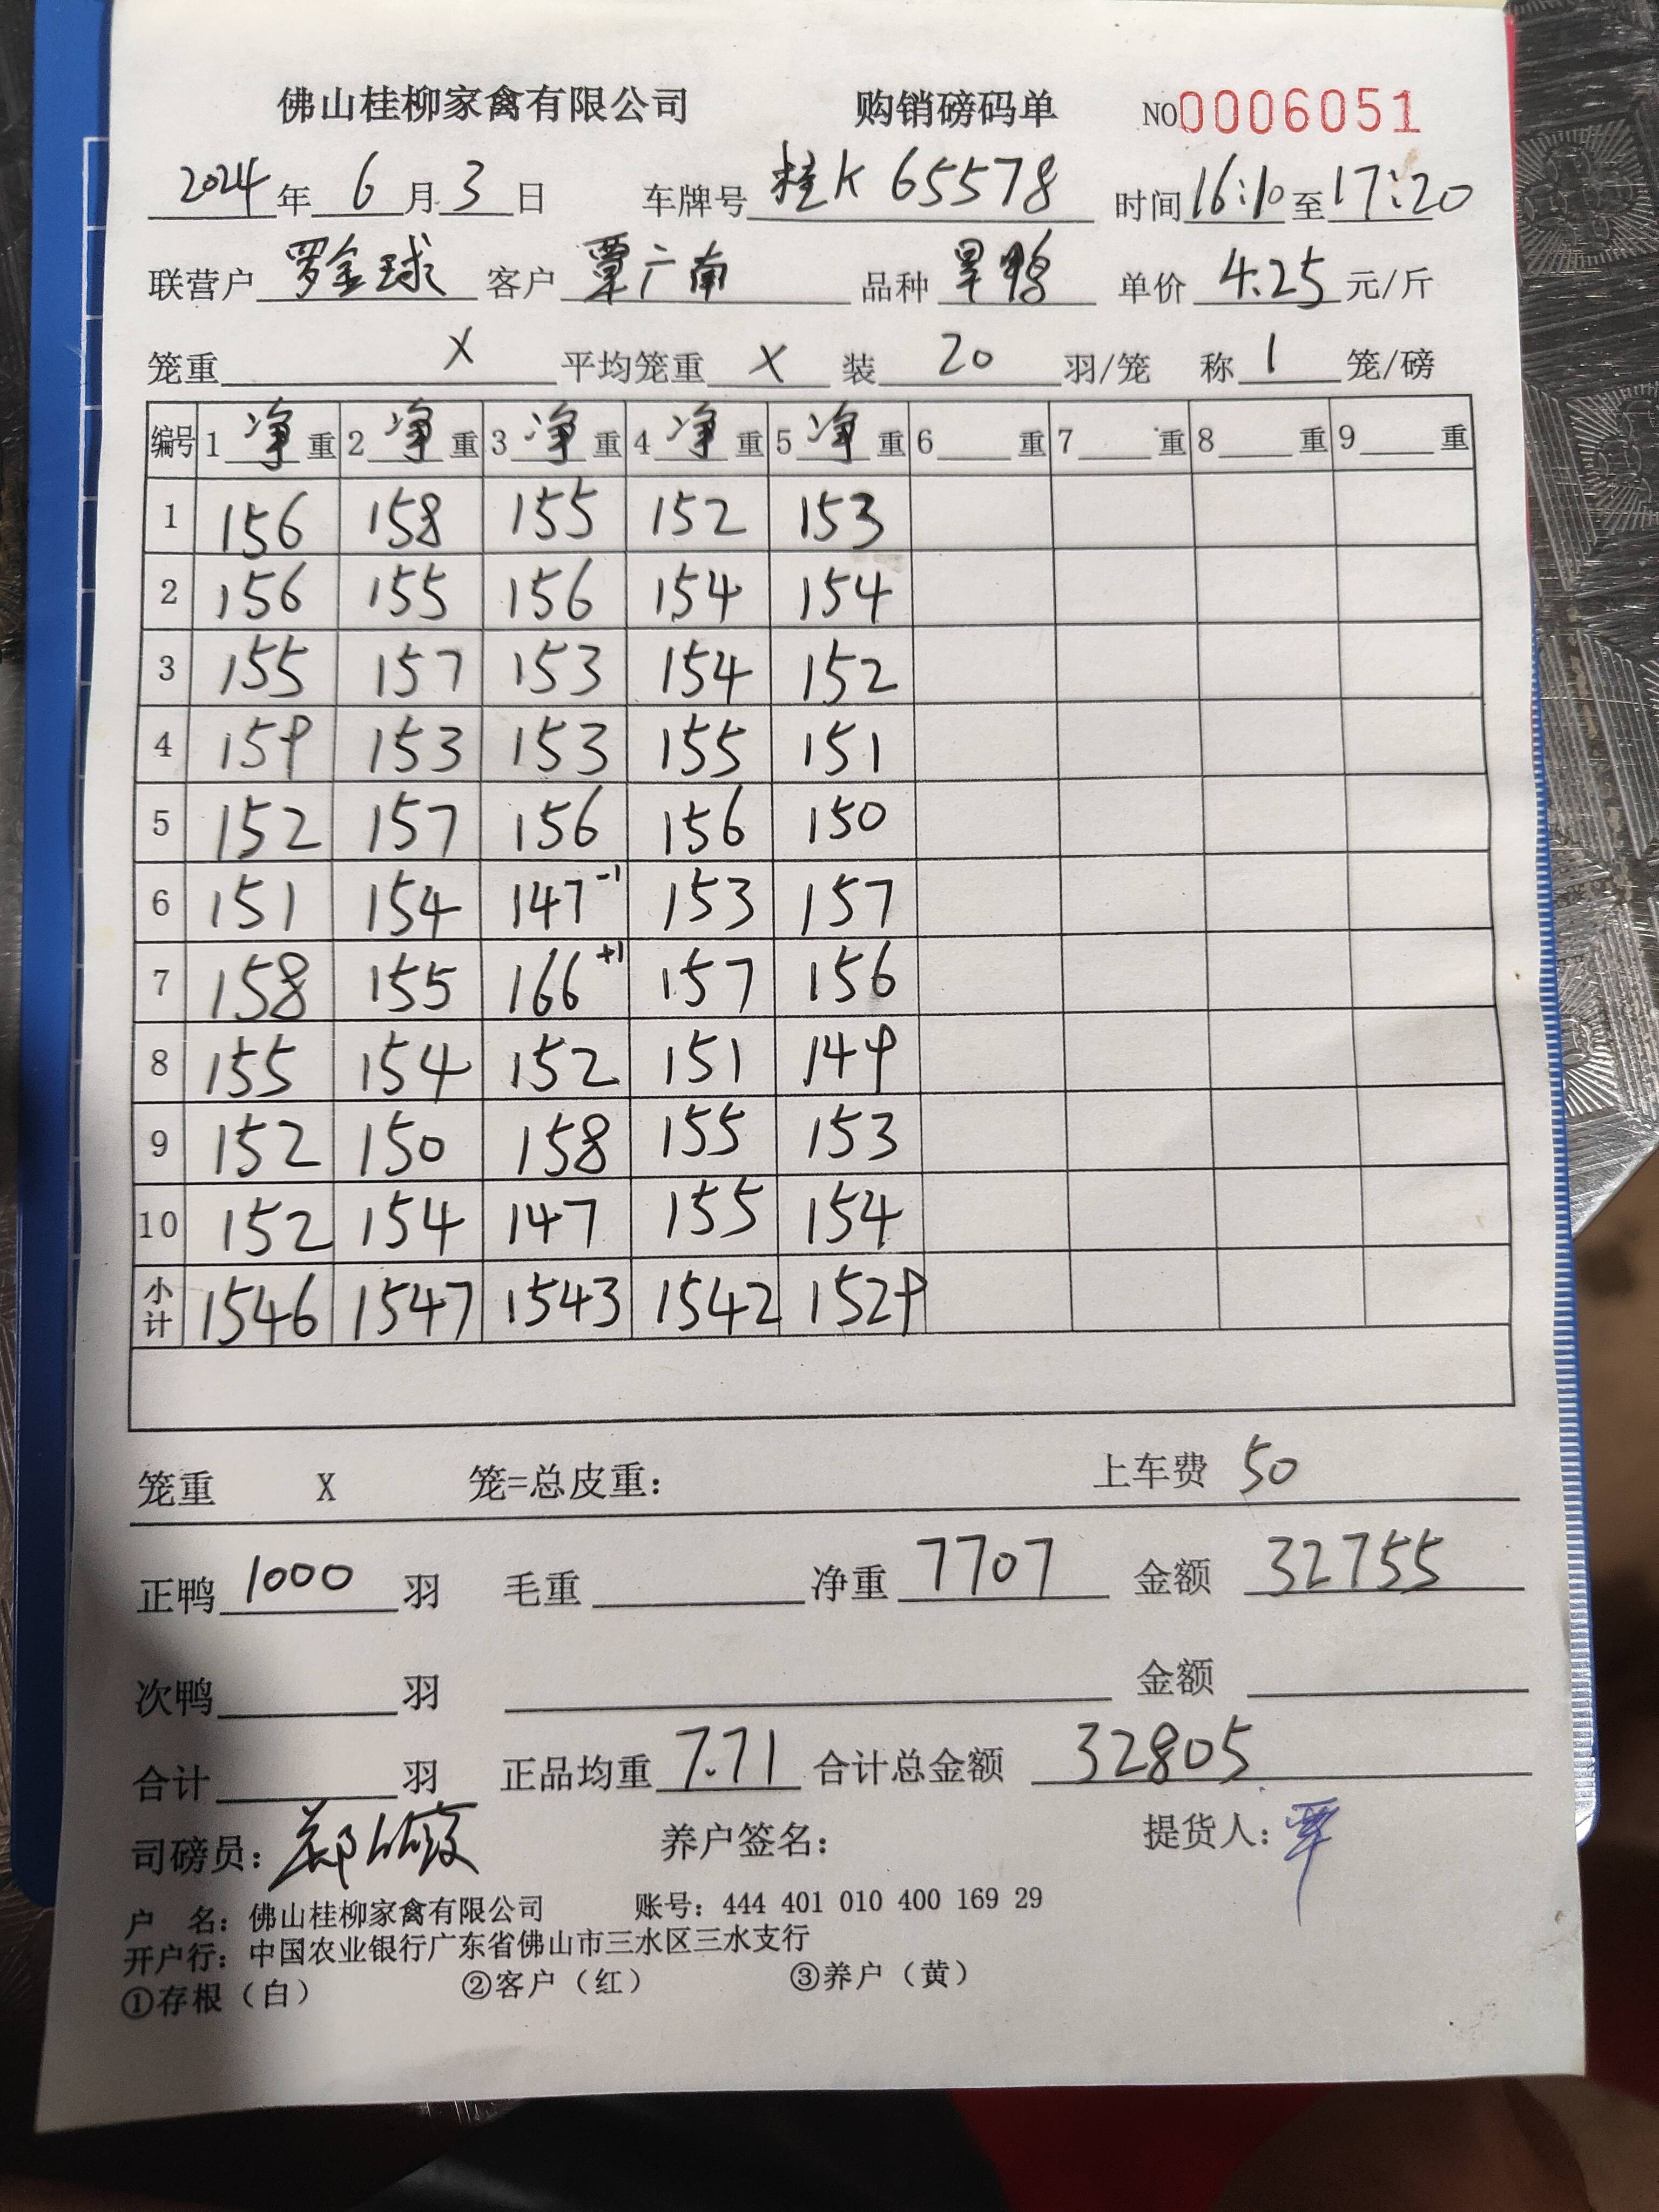 佛山桂柳家禽有限公司 购销磅码单 NO 0006051
2024年 6月 3日 车牌号 桂K 65578 时间 16:10至17:20
联营户 罗金球 客户 覃广南 品种 旱鸭 单价 4.25 元/斤
笼重 X 平均笼重 X 装 20 羽/笼 称 1 笼/磅
编号 1 净 重 2 净 重 3 净 重 4 净 重 5 净 重 6 重 7 重 8 重 9 重
1 156 158 155 152 153
2 156 155 156 154 154
3 155 157 153 154 152
4 159 153 153 155 151
5 152 157 156 156 150
6 151 154 147-1 153 157
7 158 155 166+1 157 156
8 155 154 152 151 149
9 152 150 158 155 153
10 152 154 147 155 154
小计 1546 1547 1543 1542 1529
笼重 X 笼=总皮重: 上车费 50
正鸭 1000 羽 毛重 净重 7707 金额 32755
次鸭 羽 金额
合计 羽 正品均重 7.71 合计总金额 32805
司磅员: 养户签名: 提货人: 覃
户 名: 佛山桂柳家禽有限公司 账号: 444 401 010 400 169 29
开户行: 中国农业银行广东省佛山市三水区三水支行
①存根（白） ②客户（红） ③养户（黄）